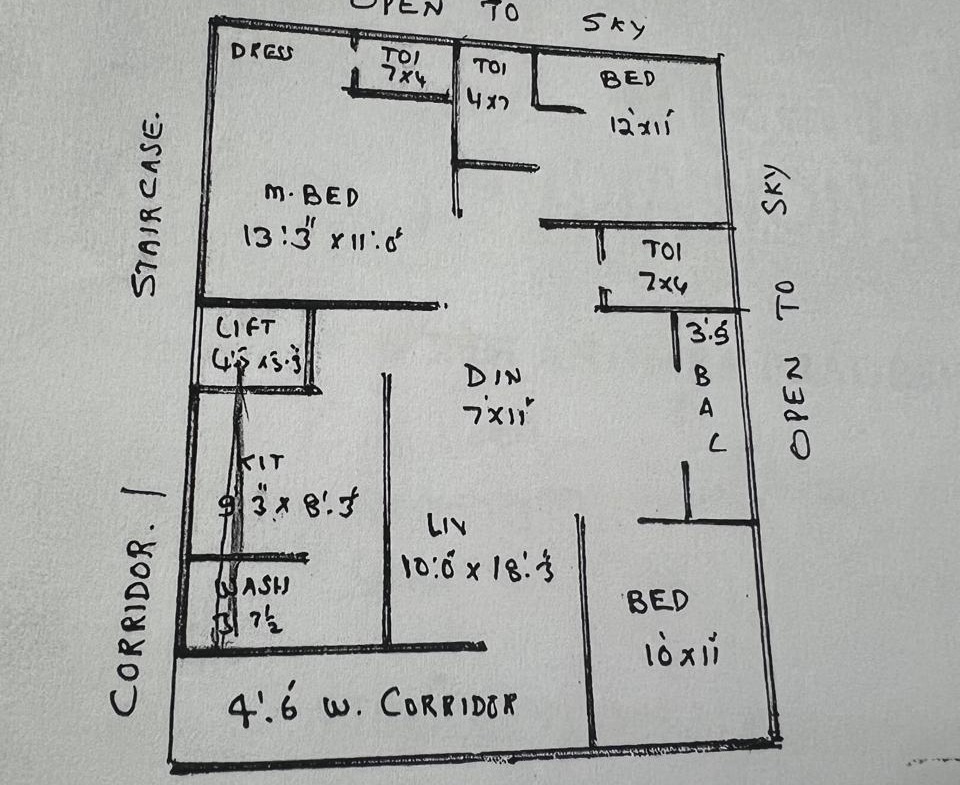 OPEN TO SKY
DRESS
TOI
7x4
TOI
4x7
BED
12'x11'
M. BED
13'.3" x 11'.0"
STAIRCASE.
OPEN TO SKY
TOI
7x4
LIFT
3'.5
BAL
DIN
7'x11'
KIT
3" x 8'.3"
LIV
10'.0" x 18'.3
WASH
7½
BED
10'x11'
CORRIDOR.
4'.6" W. CORRIDOR